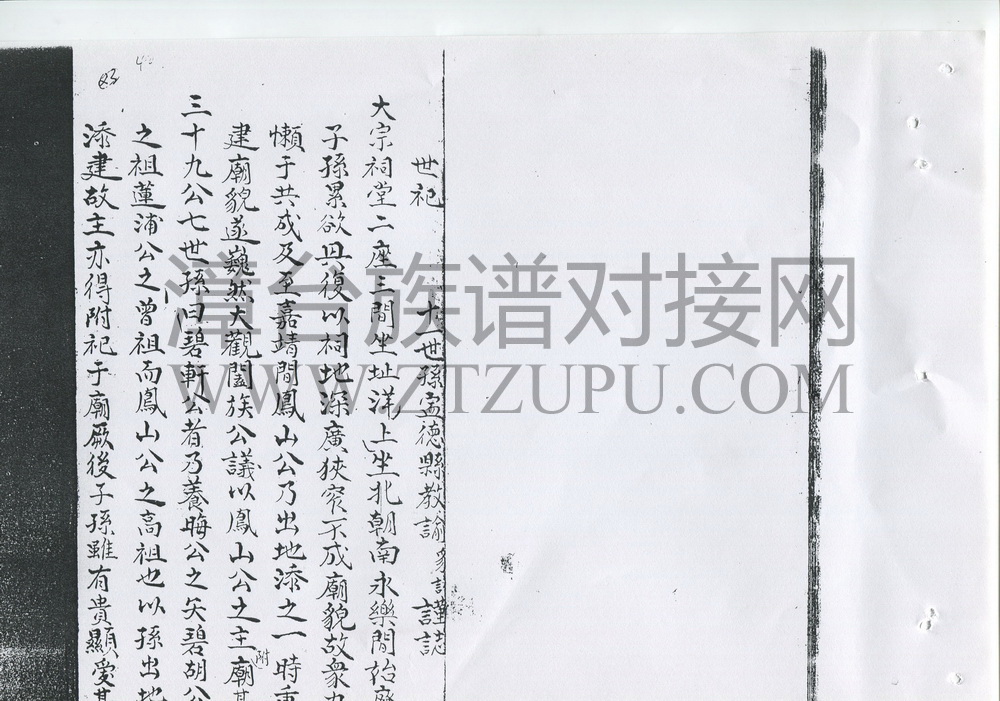 世祀
十一世孫孟德縣教諭謹誌
大宗祠堂二座三間坐址洋上坐北朝南永樂間始廢
子孫累欲興復以祠地深廣狹窄不成廟貌故衆
懶于共成及至嘉靖間鳳山公乃出地添之一時重
建廟貌遂巍然大觀闔族公議以鳳山公之主附廟其
三十九公七世孫曰碧軒公者乃養晦公之父碧胡公
之祖蓮浦公之曾祖而鳳山公之高祖也以孫出地
添建故主亦得附祀于廟厥後子孫雖有貴顯愛其
漳台族谱对接网
WWW.ZTZUPU.COM